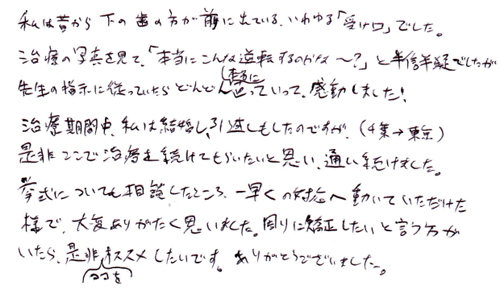 私は昔から下の歯の方が前に出ている、いわゆる「受け口」でした。
治療の写真を見て、「本当にこんな逆転するのかな～?」と半信半疑でしたが
先生の指示に従っていたらどんどん本当になっていって、感動しました!
治療期間中、私は結婚し、引越しもしたのですが、(千葉→東京)
是非ここで治療を続けてもらいたいと思い、通い続けました。
挙式についても相談したところ、一早くの対応へ動いていただけた
様で、大変ありがたく思いました。周りに矯正したいと言う方が
いたら、是非ココをオススメしたいです。ありがとうございました。